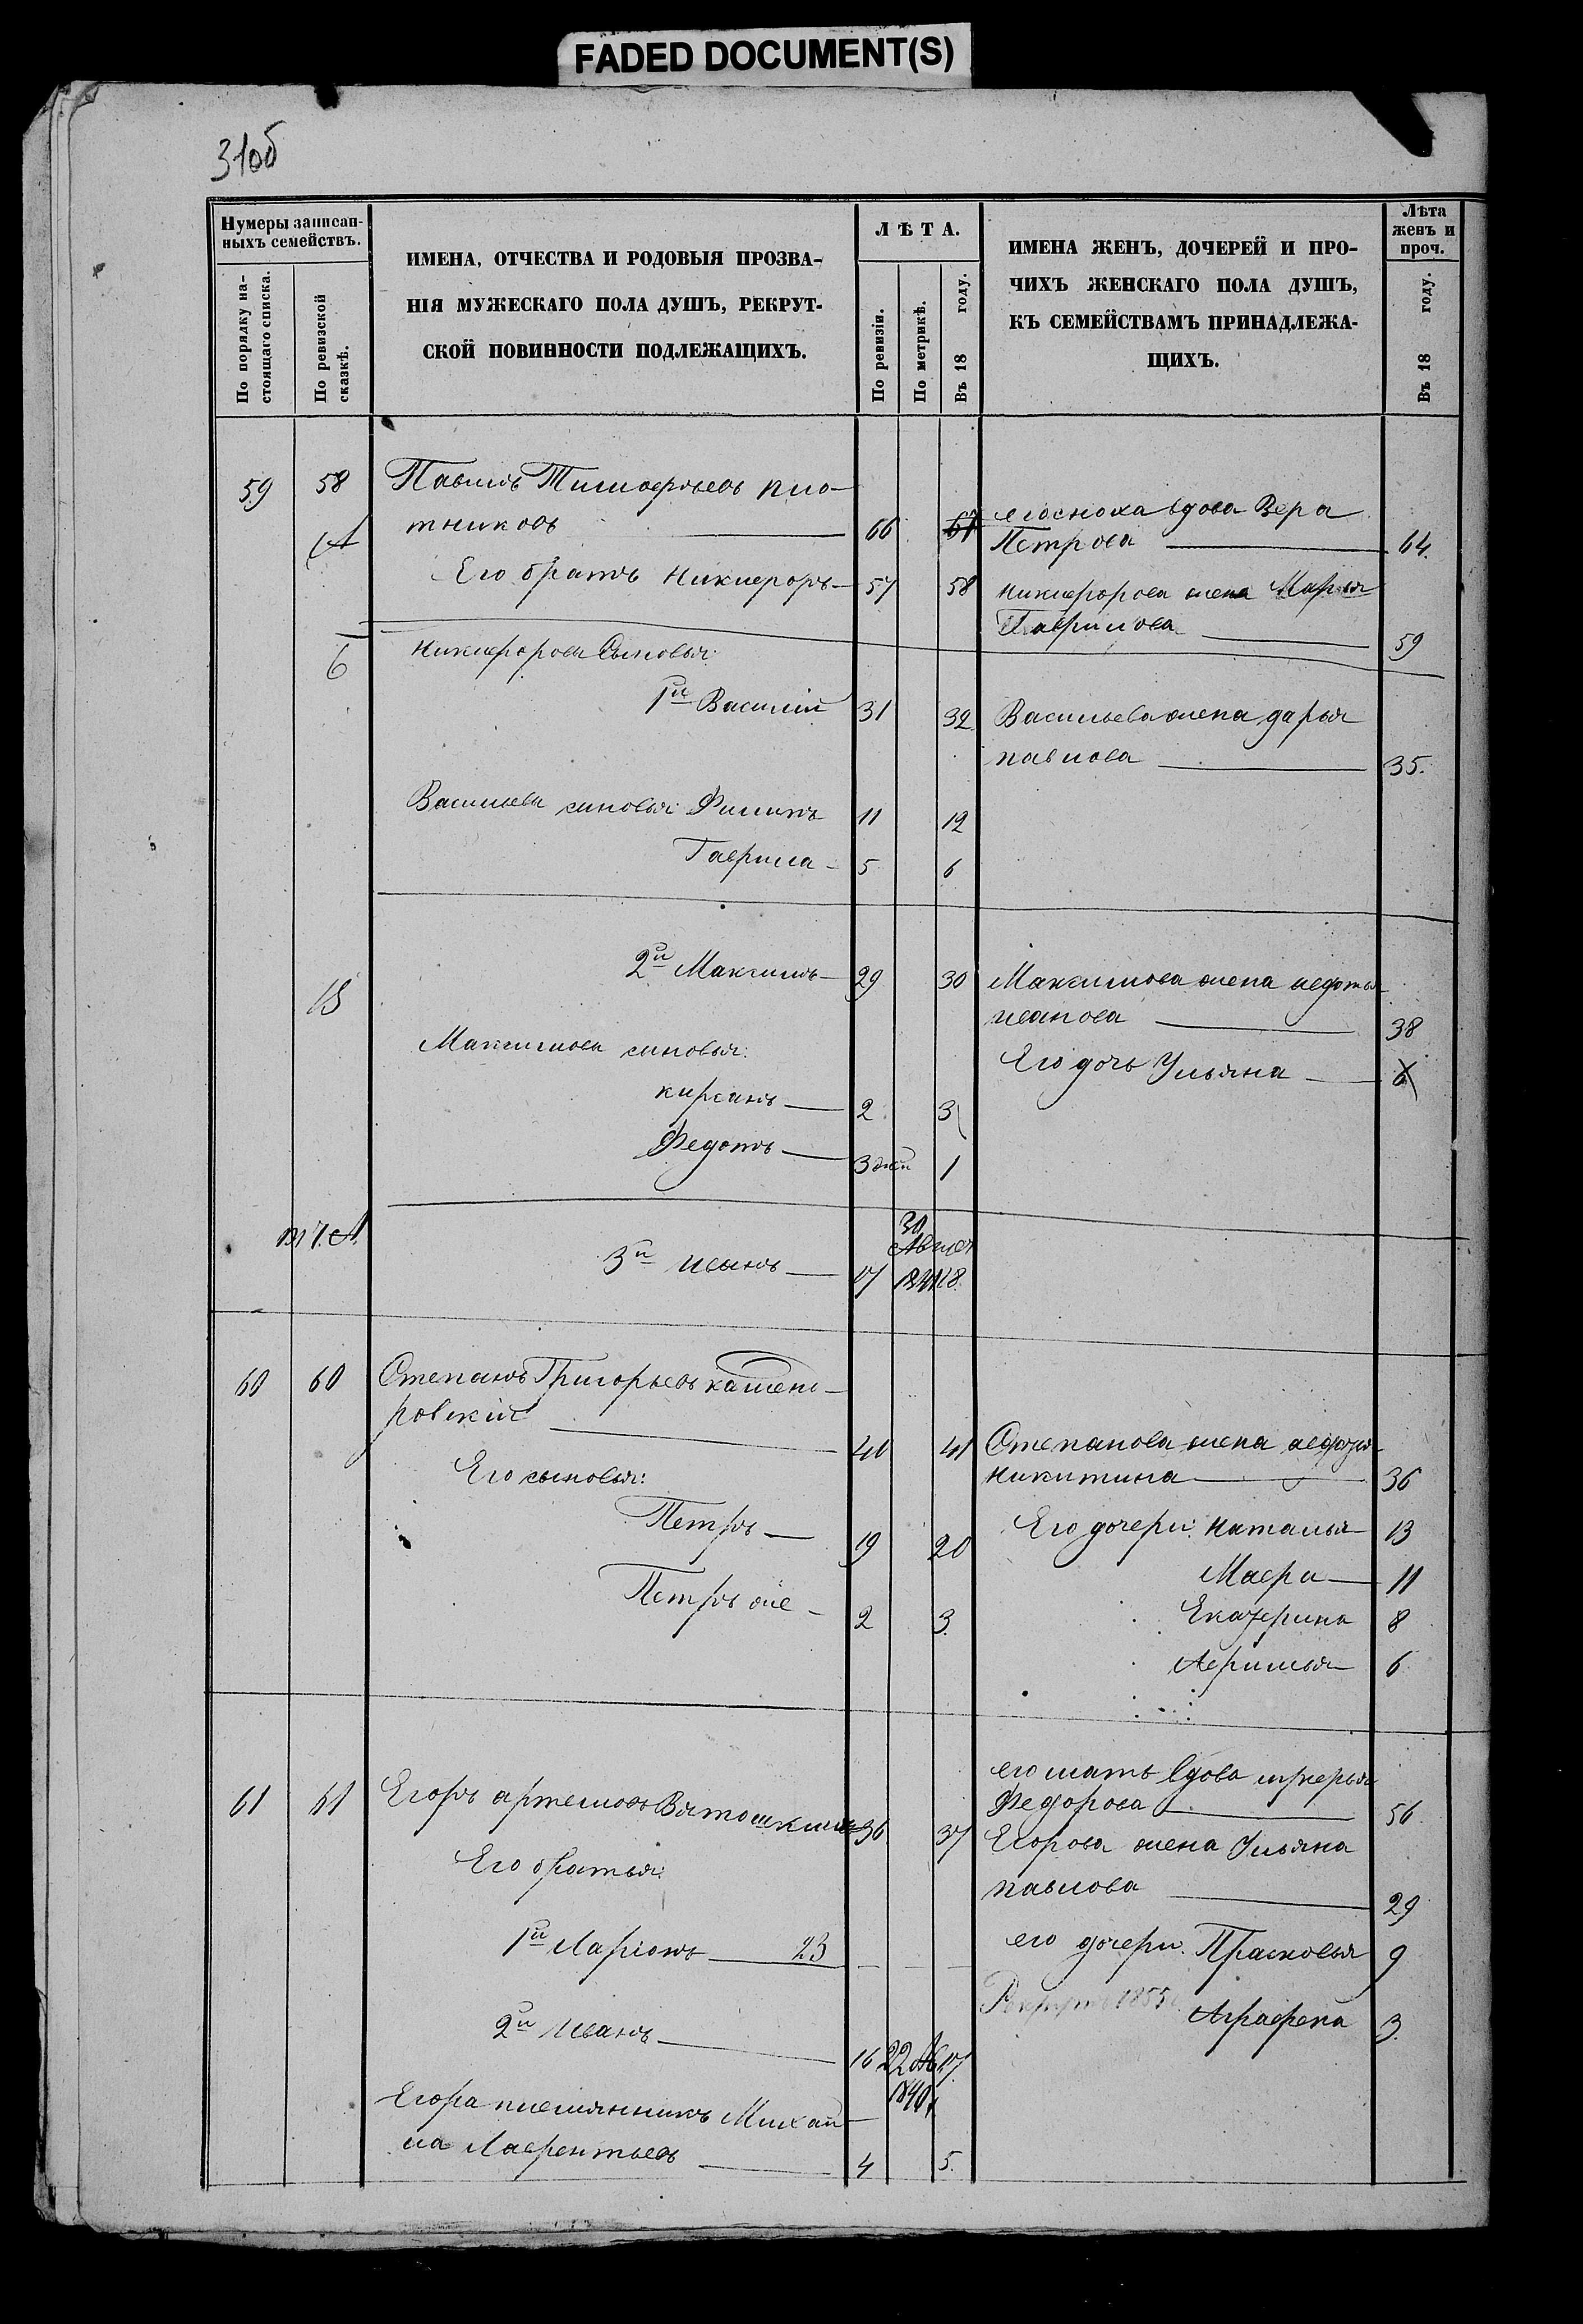 FADED DOCUMENT(S)
31об
Нумеры записан-
ныхъ семействъ.
По порядку на-
стоящаго списка.
По ревизской
сказкѣ.
ИМЕНА, ОТЧЕСТВА И РОДОВЫЯ ПРОЗВА-
НІЯ МУЖЕСКАГО ПОЛА ДУШЪ, РЕКРУТ-
СКОЙ ПОВИННОСТИ ПОДЛЕЖАЩИХЪ.
ЛѢТА.
По ревизіи.
По метрикѣ.
Въ 18 году.
ИМЕНА ЖЕНЪ, ДОЧЕРЕЙ И ПРО-
ЧИХЪ ЖЕНСКАГО ПОЛА ДУШЪ,
КЪ СЕМЕЙСТВАМЪ ПРИНАДЛЕЖА-
ЩИХЪ.
Лѣта
женъ и
проч.
Въ 18 году.
59 58 Павилъ Тимофѣевъ пло-
тниковъ 66 67
его сноха вдова Вера
Петрова 64.
А
Его братъ Никифоръ 57 58
Никифорова жена Марья
Гаврилова 59
Б
Никифорова Сыновья:
1й Василій 31 32
Васильева жена дарья
павлова 35.
Васильева синовья: Филипъ 11 12
Гаврила 5 6
В
2й Максимъ 29 30
Максимова жена авдотья
иванова 38
Максимова синовья:
Его дочь Ульяна 6
кирсанъ 2 3
Федотъ 3 дней 1
3й иванъ 17 30 Август 18
60 60 Степанъ Григорьевъ кашем-
ровский 40 41
Степанова жена
никитина 36
Его сыновья:
Петръ 19 20
Его дочери: наталья 13
Мавра 11
Петръ же 2 3.
Екатерина 8
6
61 61 Егоръ артемовъ Вятошкинъ 36 37
его мать вдова
Федорова 56
Егорова жена Ульяна
павлова 29
Его братья:
1й Ларіонъ 23
его дочери: Прасковья 9
1855
Аграфена 3.
2й иванъ 16 22 17
1840
Егора племянникъ Михай-
ла Лаврентьевъ 4 5.